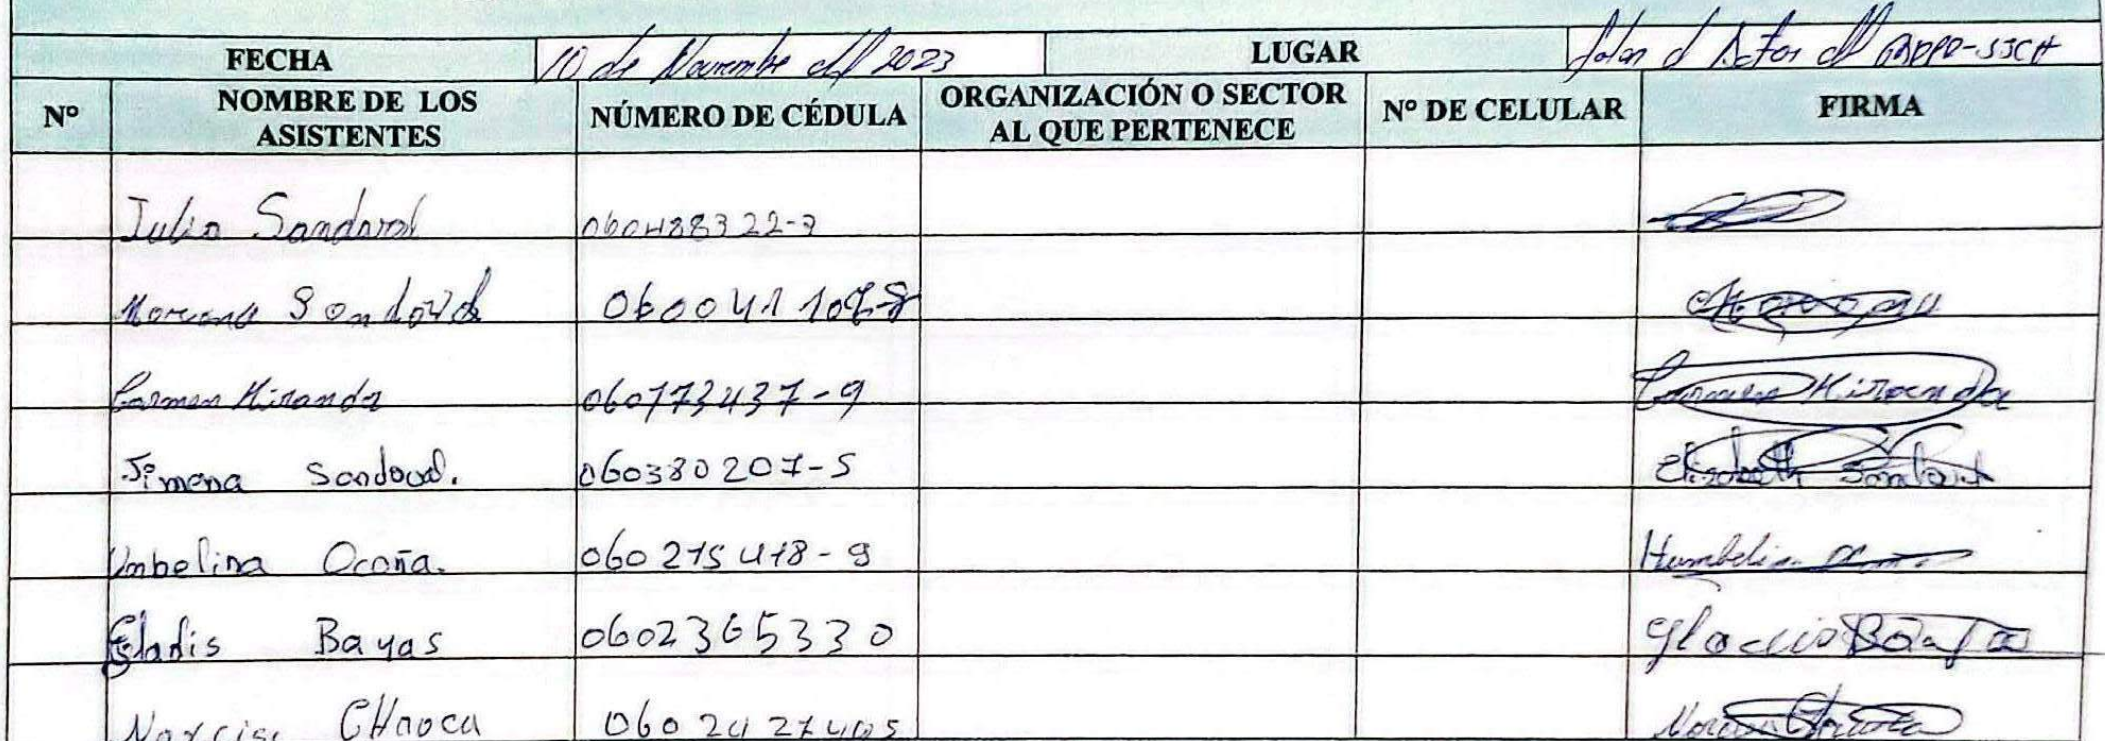 FECHA 10 de Noviembre del 2023 LUGAR Salon d Actos del GADPR-SJCH
Nº NOMBRE DE LOS ASISTENTES NÚMERO DE CÉDULA ORGANIZACIÓN O SECTOR AL QUE PERTENECE Nº DE CELULAR FIRMA
Julio Sandoval 060488322-7
Mariana Sandoval 060041107-8 Mariana
Carmen Miranda 060173437-9 Carmen Miranda
Jimena Sandoval. 060380207-5 Elizabeth Sandoval
Umbelina Ocaña. 060275418-9 Humbelina
Gladis Bayas 0602365330 Gladis Bayas
Narcisa CHaoca 0602427405 Narcisa